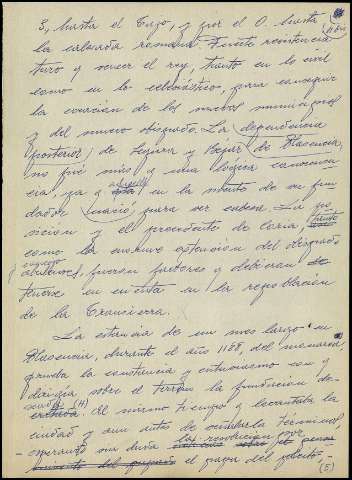 S, hasta el Tajo, y por el O. hasta
la calzada romana. Fuerte resistencia
tuvo y vencer el rey, tanto en lo civil
como en lo eclesiástico, para conseguir
la creación de los nuevos municipios
y del nuevo obispado. La dependencia
posterior, de Segura y Bejar de Plasencia,
no fué más que una lógica consecuen
cia, ya que aquella en la mente de su fun
dador nació para ser cabeza. La po
sición y el precedente de Coria,
como la enorme extensión del obispado
abulense, fueron factores que debieron
tenerse en cuenta en la repoblación
de la Transierra.
La estancia de un mes largo en
Plasencia, durante el año 1188, del monarca
prueba la constancia y entusiasmo con que
dirigía sobre el terreno la fundación de
(4) Al mismo tiempo que levantaba la
ciudad y aun antes de acabarla
esperando sin duda
el pago del
(5)